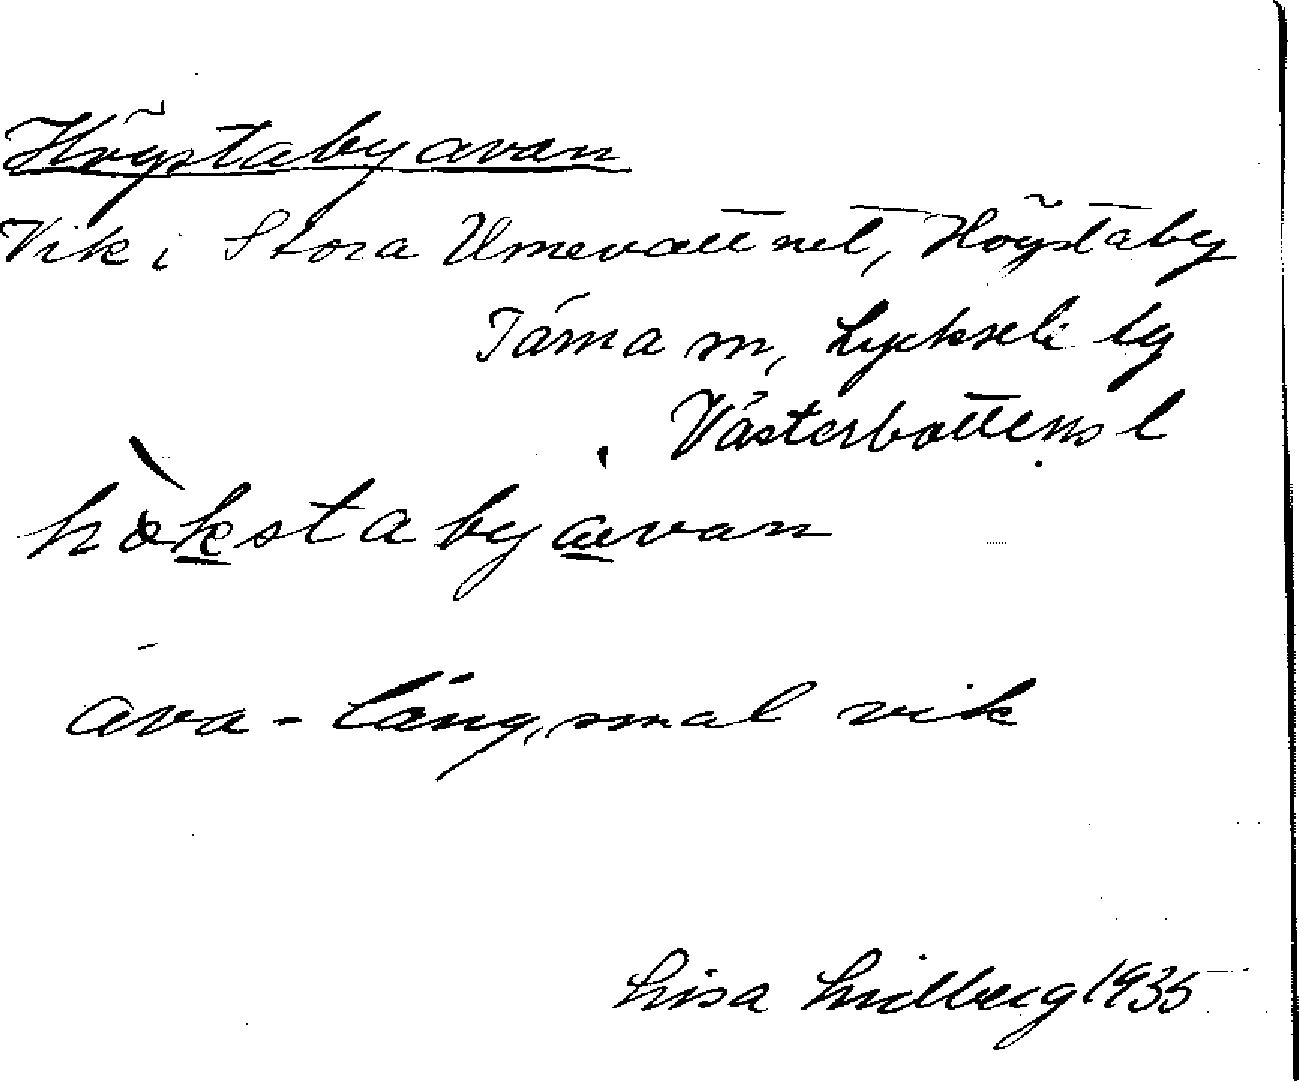 Högstabyavan
Vik i Stora Umevattnet, Högstaby
Tärna sn, Lycksele lg
Västerbottens l
hòkstabyavan
ava - lång, smal vik
Lisa Lidberg 1935